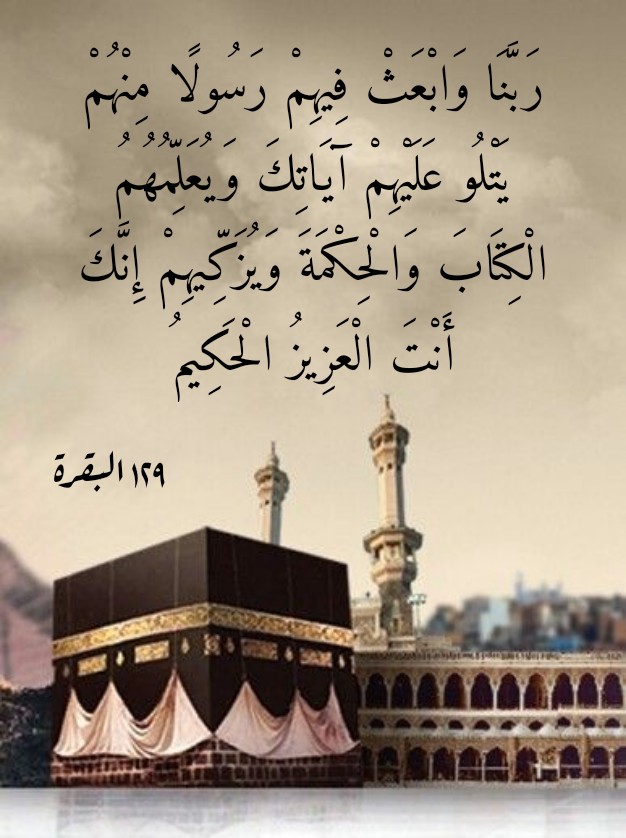 رَبَّنَا وَابْعَثْ فِيهِمْ رَسُولًا مِنْهُمْ
يَتْلُو عَلَيْهِمْ آيَاتِكَ وَيُعَلِّمُهُمُ
الْكِتَابَ وَالْحِكْمَةَ وَيُزَكِّيهِمْ إِنَّكَ
أَنْتَ الْعَزِيزُ الْحَكِيمُ
١٢٩ البقرة